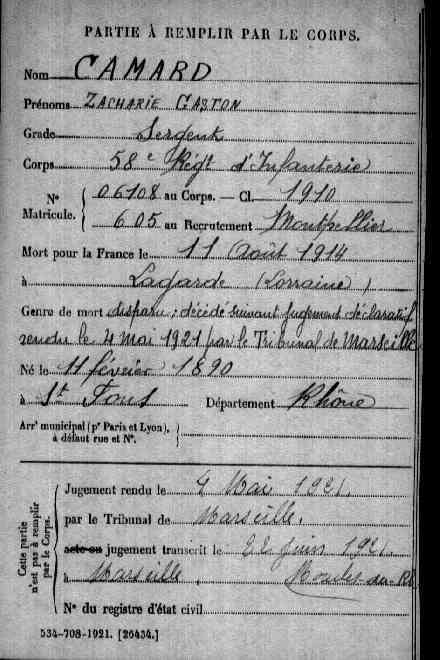 PARTIE À REMPLIR PAR LE CORPS.
Nom CAMARD
Prénoms ZACHARIE GASTON
Grade Sergent
Corps 58e Régt d'Infanterie
N° Matricule. { 06108 au Corps. — Cl. 1910
605 au Recrutement Montpellier
Mort pour la France le 11 Août 1914
à Lagarde (Lorraine)
Genre de mort disparu; décédé suivant jugement déclaratif
rendu le 4 mai 1921 par le Tribunal de Marseille
Né le 11 février 1890
à St Fons Département Rhône
Arrt municipal (pr Paris et Lyon), à défaut rue et N°. }
Cette partie n'est pas à remplir par le Corps.
Jugement rendu le 4 Mai 1921.
par le Tribunal de Marseille.
acte ou jugement transcrit le 22 juin 1921.
à Marseille, Bouches-du-Rh
N° du registre d'état civil
534-708-1921. [26434.]